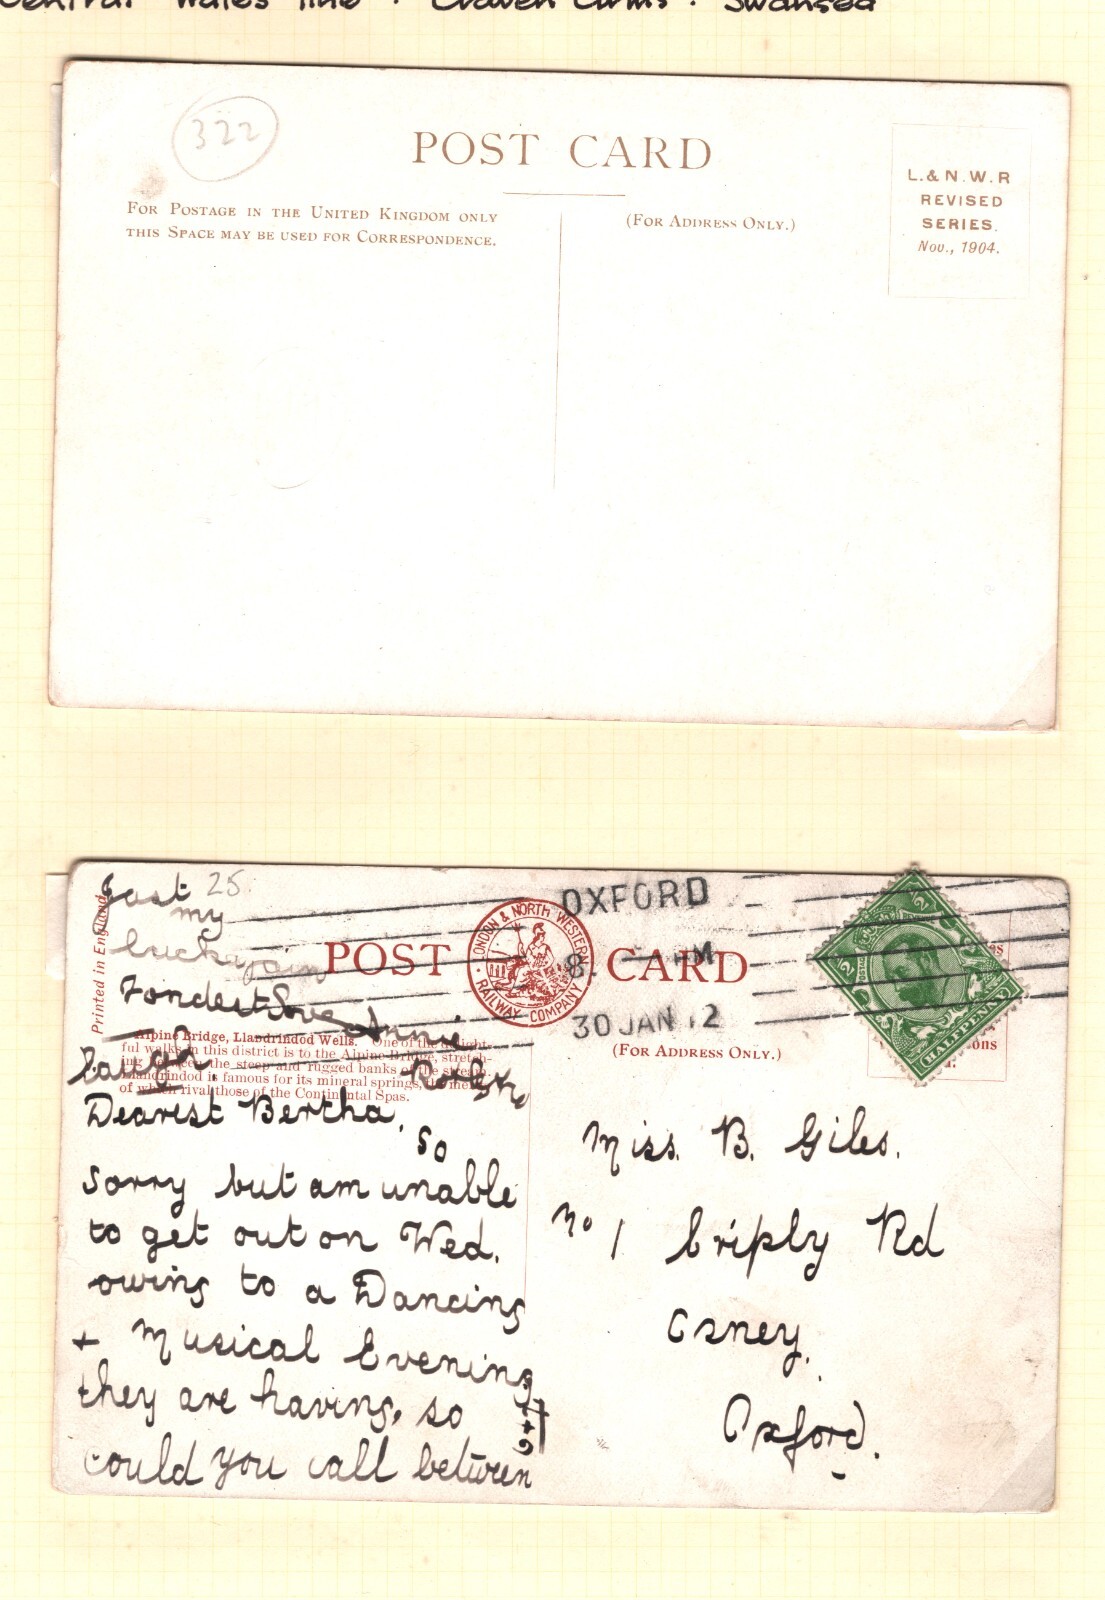 Central Wales line . Craven Arms . Swansea
322
POST CARD
FOR POSTAGE IN THE UNITED KINGDOM ONLY
THIS SPACE MAY BE USED FOR CORRESPONDENCE.
(FOR ADDRESS ONLY.)
L. & N. W. R
REVISED
SERIES.
Nov., 1904.
Just 25
my
lucky
Fondest Love Annie
Printed in England
POST CARD
LONDON & NORTH WESTERN
RAILWAY COMPANY
OXFORD
8. PM
30 JAN 12
HALFPENNY
(FOR ADDRESS ONLY.)
Alpine Bridge, Llandrindod Wells. One of the delight-
ful walks in this district is to the Alpine Bridge, stretch-
ing between the steep and rugged banks of the stream.
Llandrindod is famous for its mineral springs, the merits
of which rival those of the Continental Spas.
Dearest Bertha,
so
sorry but am unable
to get out on Wed.
owing to a Dancing
+ Musical Evening
they are having, so
could you call between
Miss. B. Giles.
No 1 Criply Rd
Osney.
Oxford.